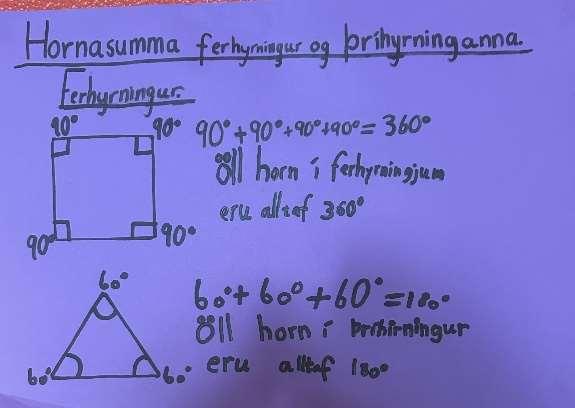 Hornasumma ferhyrningur og þríhyrninganna.
Ferhyrningur.
90° 90° 90°+90°+90°+90°=360°
öll horn í ferhyrningjum
eru alltaf 360°
90° 90°
60° 60°+60°+60°=180°
öll horn í þríhirningur
60° 60° eru alltaf 180°